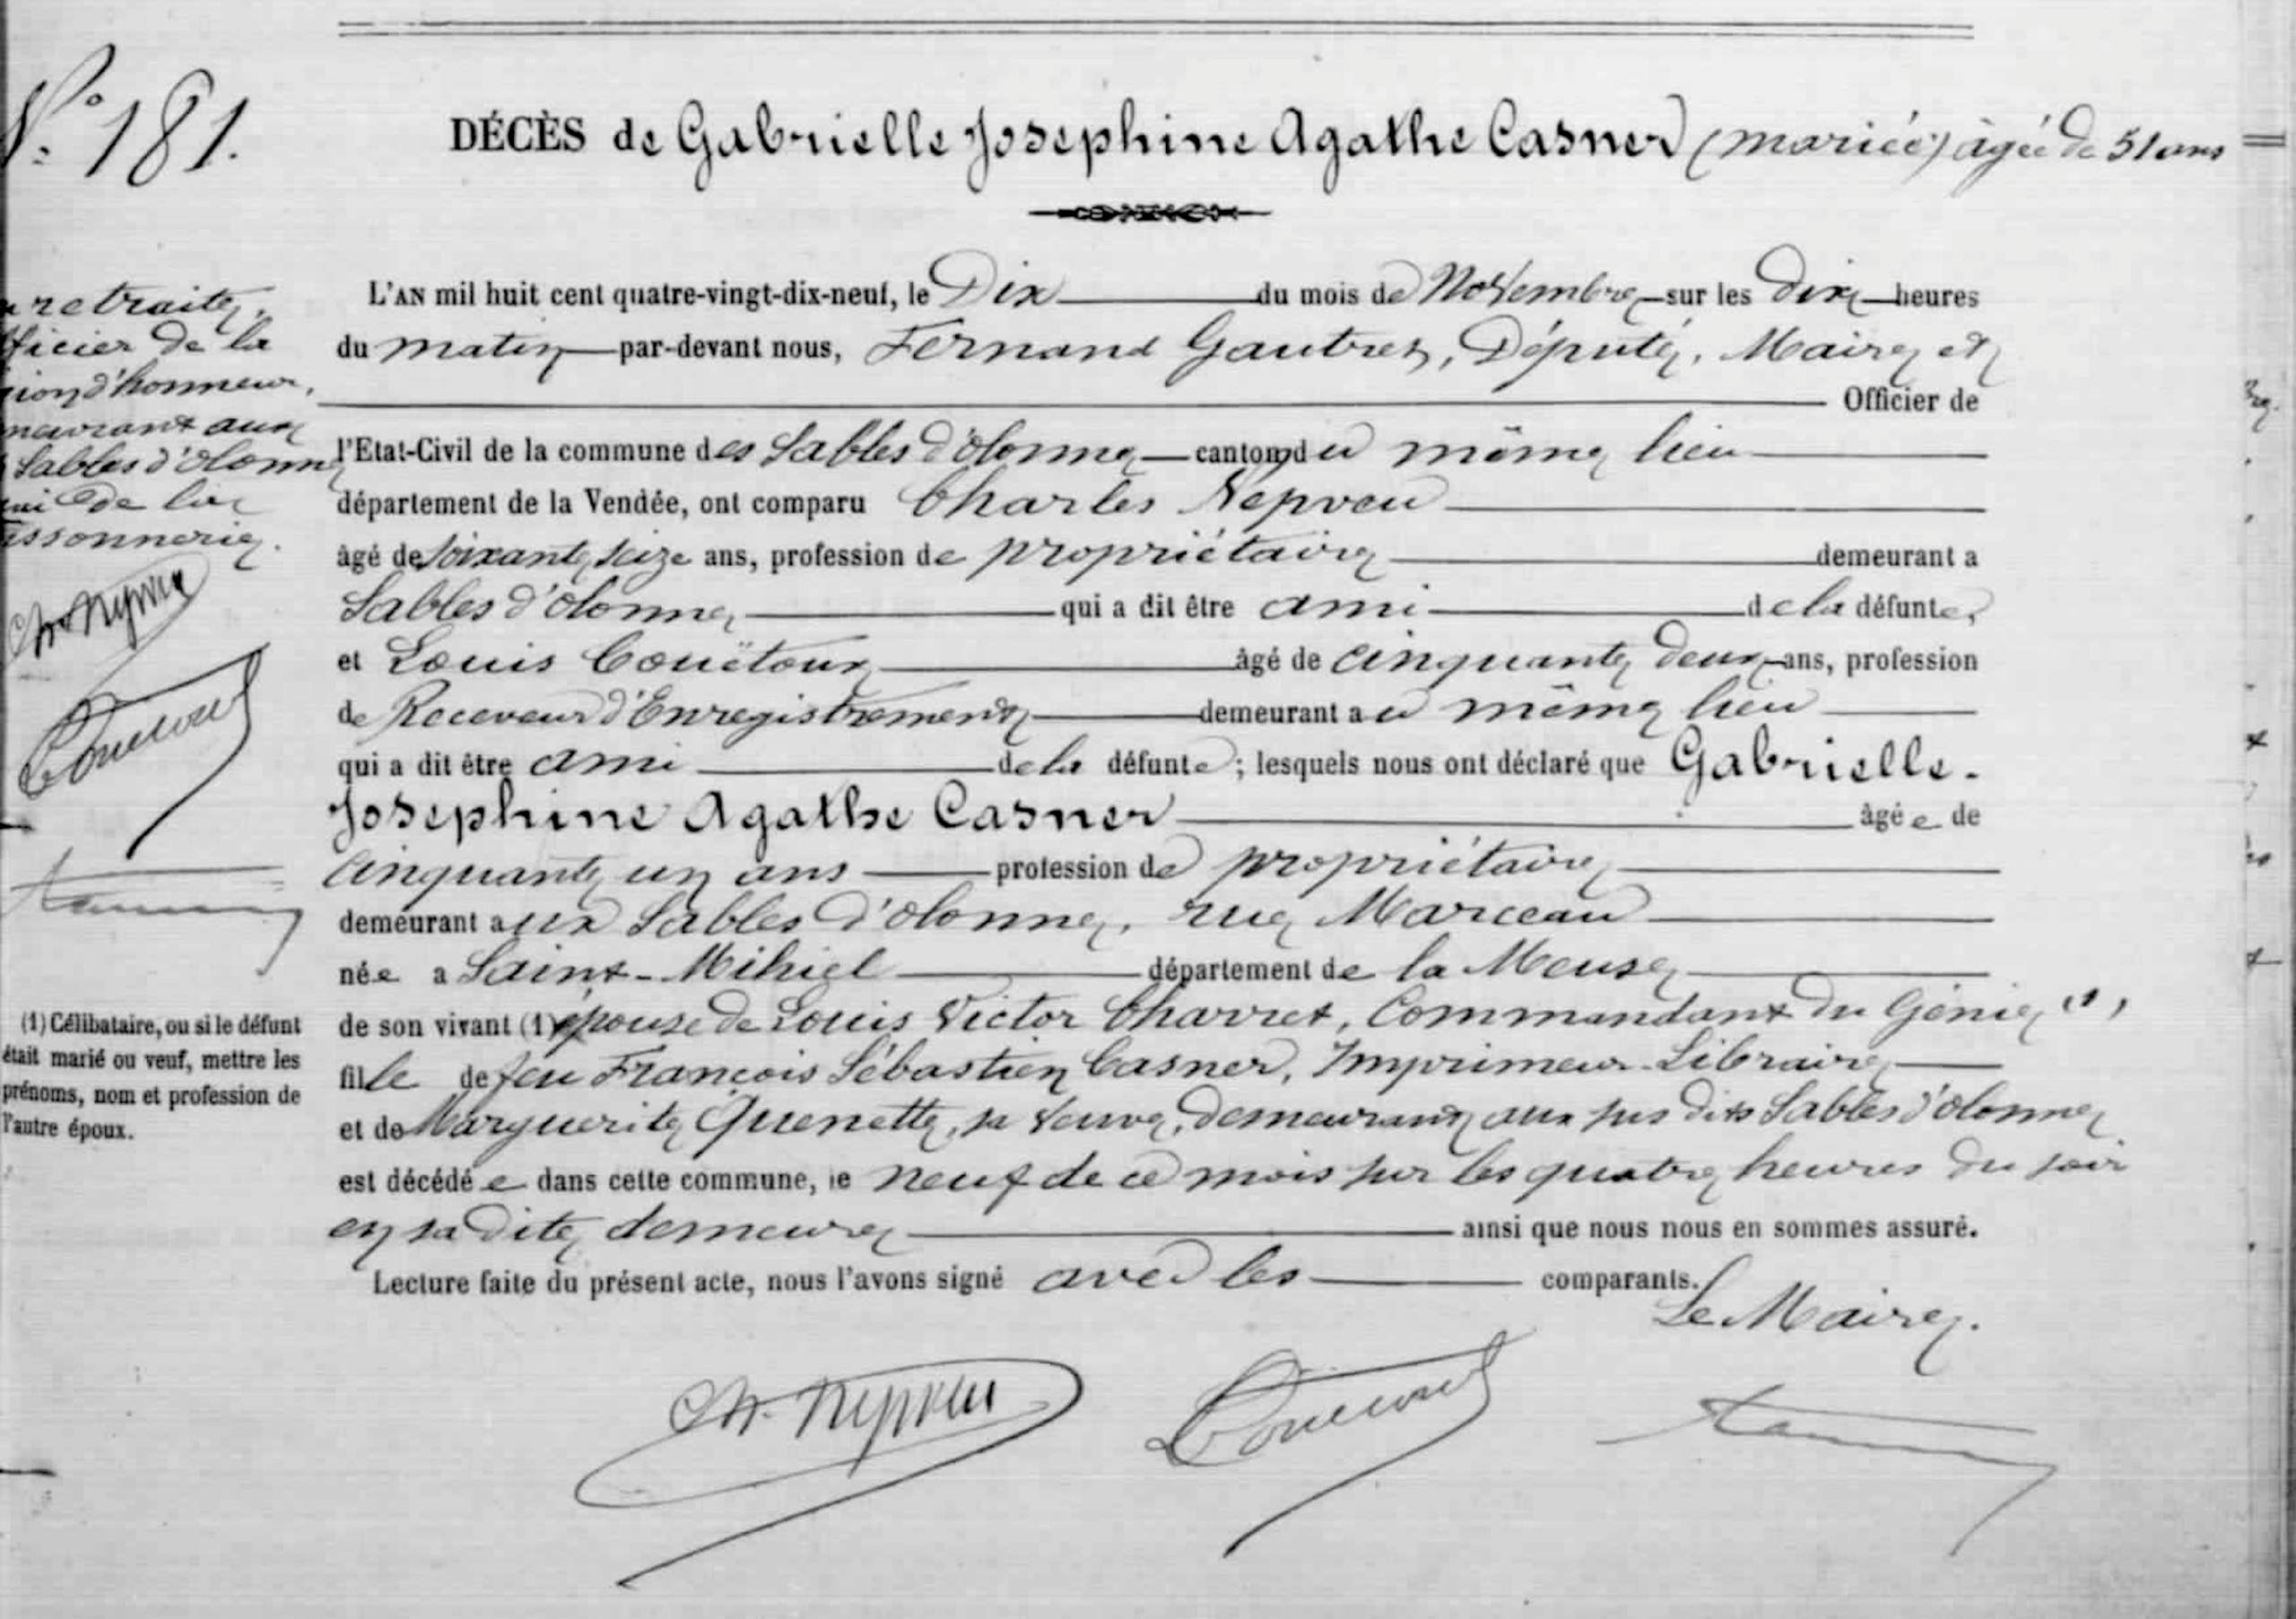 N° 181.
DÉCÈS de Gabrielle Josephine Agathe Casner (mariée) âgée de 51 ans
L'AN mil huit cent quatre-vingt-dix-neuf, le Dix du mois de Novembre sur les dix heures
du matin par-devant nous, Fernand Gautret, Député, Maire et
Officier de
l'Etat-Civil de la commune des Sables d'olonne canton du même lieu
département de la Vendée, ont comparu Charles Nepveu
âgé de soixante seize ans, profession de propriétaire demeurant a
Sables d'olonne qui a dit être ami de la défunte,
et Louis Couëtoux âgé de cinquante deux ans, profession
de Receveur d'Enregistrement demeurant au même lieu
qui a dit être ami de la défunte ; lesquels nous ont déclaré que Gabrielle-
Josephine Agathe Casner âgée de
cinquante un ans profession de propriétaire
demeurant aux Sables d'olonne, rue Marceau
née a Saint-Mihiel département de la Meuse
de son vivant (1) épouse de Louis Victor Charret, Commandant du Génie (1),
fille de feu François Sébastien Casner, Imprimeur-Libraire
et de Marguerite Quenette, sa veuve, demeurant aux sus dits Sables d'olonne
est décédée dans cette commune, le neuf de ce mois sur les quatre heures du soir
en sa dite demeure ainsi que nous nous en sommes assuré.
Lecture faite du présent acte, nous l'avons signé avec les comparants.
Le Maire.
Ch. Nepveu
retraite,
ficier de la
ion d'honneur,
meurant aux
Sables d'olonne
de la
issonnerie.
Ch. Nepveu
(1) Célibataire, ou si le défunt
était marié ou veuf, mettre les
prénoms, nom et profession de
l'autre époux.